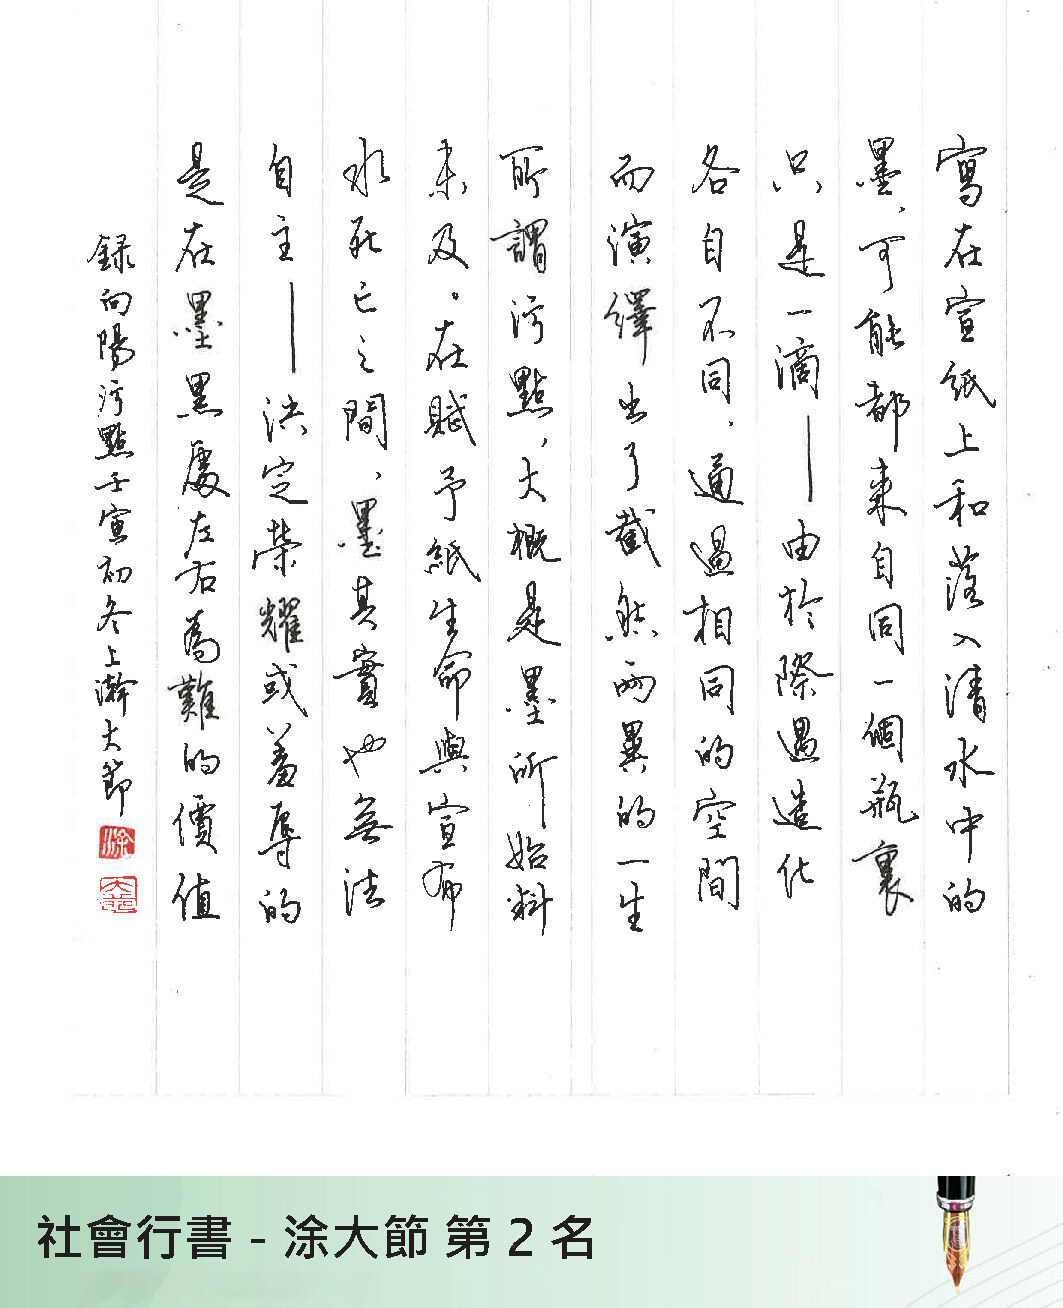 寫在宣紙上和落入清水中的
墨，可能都來自同一個瓶裏
只是一滴——由於際遇造化
各自不同，通過相同的空間
而演繹出了截然兩異的一生
所謂污點，大概是墨所始料
未及。在賦予紙生命與宣布
水死亡之間，墨其實也無法
自主——決定榮耀或羞辱的
是在墨黑處左右為難的價值
錄向陽污點壬寅初冬上澣大節
涂
大節
社會行書 - 涂大節 第 2 名